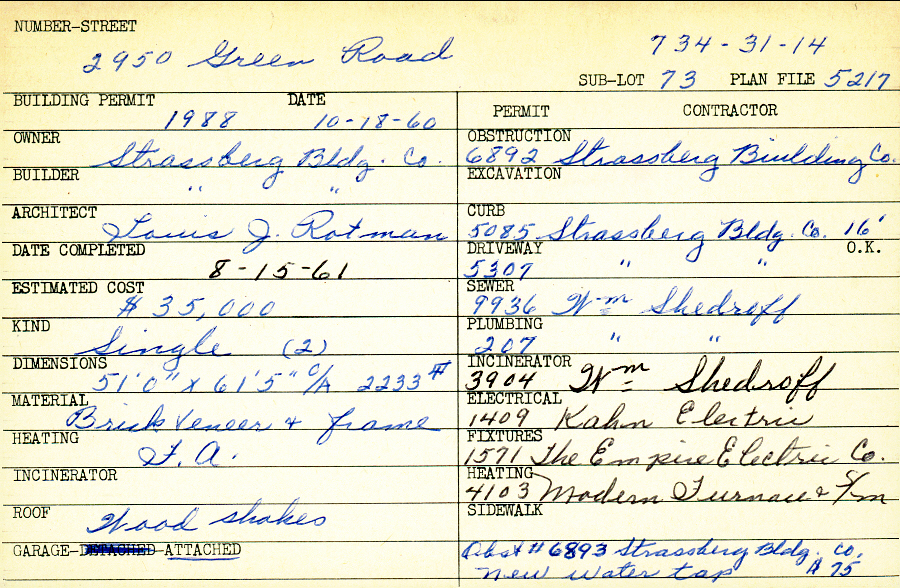 NUMBER-STREET
2950 Green Road
734-31-14
SUB-LOT 73 PLAN FILE 5217
BUILDING PERMIT DATE
1988 10-18-60
OWNER
Strassberg Bldg. Co.
BUILDER
" "
ARCHITECT
Louis J. Rotman
DATE COMPLETED
8-15-61
ESTIMATED COST
$ 35,000
KIND
Single (2)
DIMENSIONS
51'0" x 61'5" C/A 2233 #
MATERIAL
Brick Veneer + frame
HEATING
F. A.
INCINERATOR
ROOF
Wood shakes
GARAGE-DETACHED-ATTACHED
PERMIT CONTRACTOR
OBSTRUCTION
6892 Strassberg Building Co.
EXCAVATION
CURB
5085 Strassberg Bldg. Co. 16'
DRIVEWAY O.K.
5307 " "
SEWER
9936 Wm Shedroff
PLUMBING
207 " "
INCINERATOR
3904 Wm Shedroff
ELECTRICAL
1409 Kahn Electric
FIXTURES
1571 The Empire Electric Co.
HEATING
4103 Modern Furnace & S/m
SIDEWALK
Obst # 6893 Strassberg Bldg. Co.
New water tap $ 75